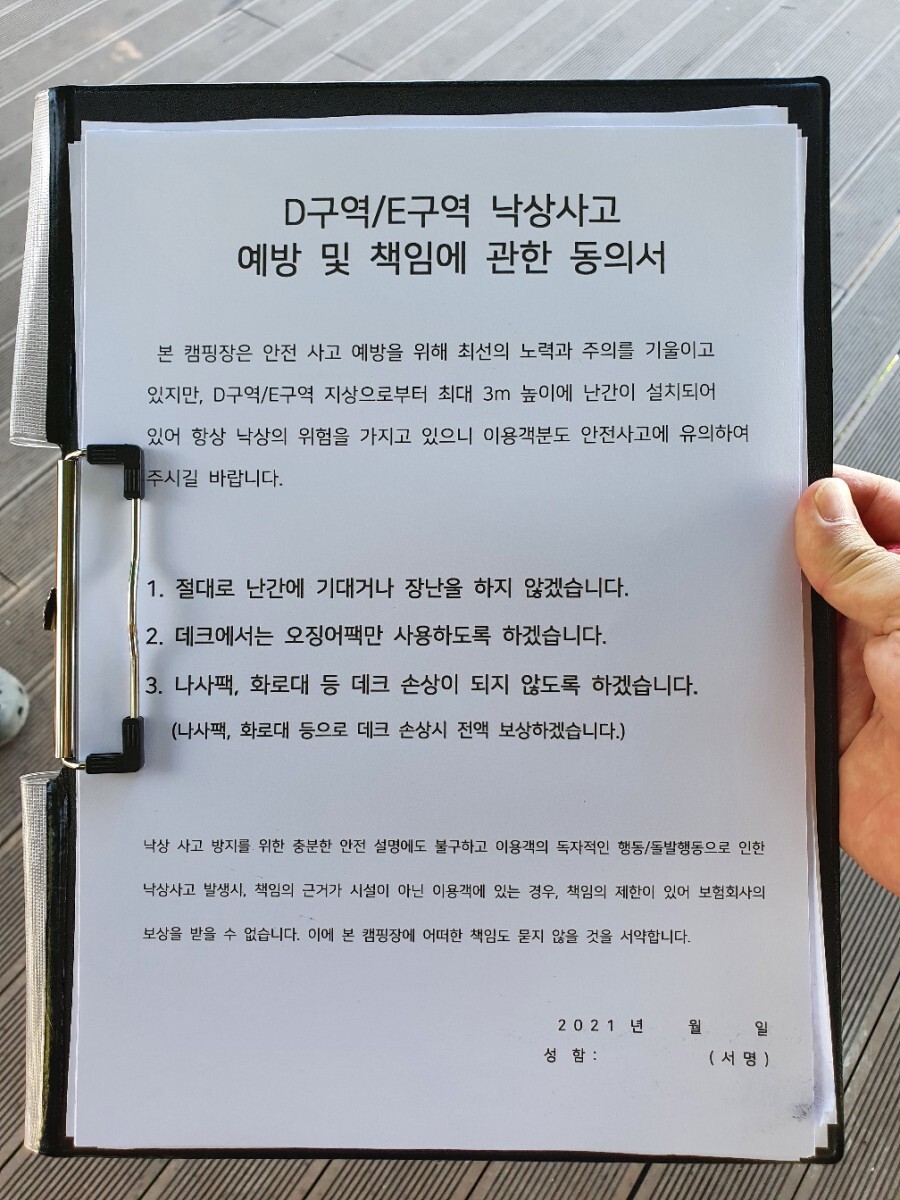 D구역/E구역 낙상사고
예방 및 책임에 관한 동의서
본 캠핑장은 안전 사고 예방을 위해 최선의 노력과 주의를 기울이고
있지만, D구역/E구역 지상으로부터 최대 3m 높이에 난간이 설치되어
있어 항상 낙상의 위험을 가지고 있으니 이용객분도 안전사고에 유의하여
주시길 바랍니다.
1. 절대로 난간에 기대거나 장난을 하지 않겠습니다.
2. 데크에서는 오징어팩만 사용하도록 하겠습니다.
3. 나사팩, 화로대 등 데크 손상이 되지 않도록 하겠습니다.
(나사팩, 화로대 등으로 데크 손상시 전액 보상하겠습니다.)
낙상 사고 방지를 위한 충분한 안전 설명에도 불구하고 이용객의 독자적인 행동/돌발행동으로 인한
낙상사고 발생시, 책임의 근거가 시설이 아닌 이용객에 있는 경우, 책임의 제한이 있어 보험회사의
보상을 받을 수 없습니다. 이에 본 캠핑장에 어떠한 책임도 묻지 않을 것을 서약합니다.
2021 년 월 일
성 함: (서명)